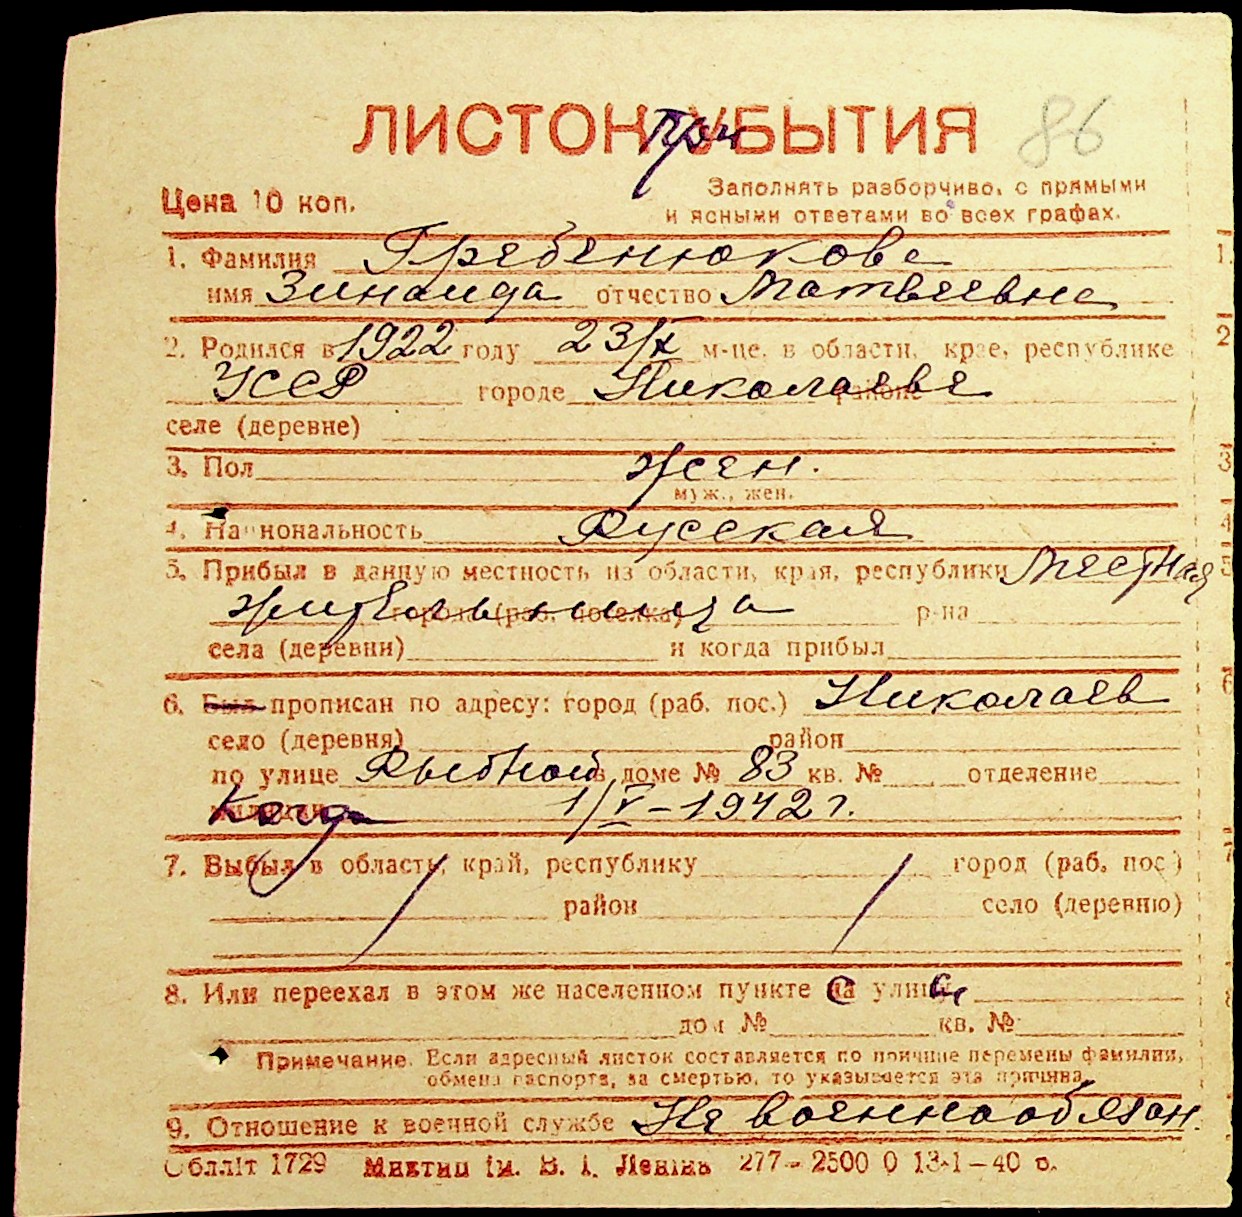 ЛИСТОК УБЫТИЯ
При
86
Цена 10 коп.
Заполнять разборчиво, с прямыми
и ясными ответами во всех графах.
1. Фамилия Гребенюкова
имя Зинаида отчество Матвеевна
2. Родился в 1922 году 23/IX м-це, в области, крае, республике
УССР городе Николаеве районе
селе (деревне)
3. Пол жен.
муж., жен.
4. Национальность Русская
5. Прибыл в данную местность из области, края, республики Местная
жительница города (раб. поселка) р-на
села (деревни) и когда прибыл
6. Был прописан по адресу: город (раб. пос.) Николаев
село (деревня) район
по улице Рыбной в доме № 83 кв. № отделение
милиции Когда 1/V-1942 г.
7. Выбыл в область, край, республику город (раб. пос.)
район село (деревню)
8. Или переехал в этом же населенном пункте с улицы
дом № кв. №
Примечание. Если адресный листок составляется по причине перемены фамилии,
обмена паспорта, за смертью, то указывается эта причина.
9. Отношение к военной службе Не военнообязан.
Обллiт 1729 Миктип iм. В. I. Ленiнa 277-2500 0 13-1-40 р.
1.
2
3
4
5
6
7
8